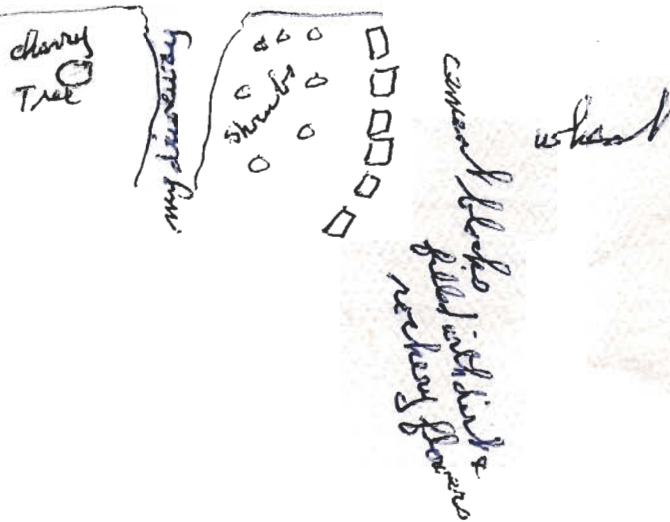 cherry
Tree
my driveway
shrubs
cement blocks
filled with dirt &
rockery flowers
wheat